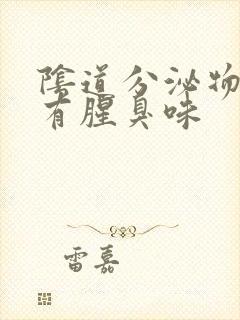 陰道分泌物
有腥臭味
雷嘉